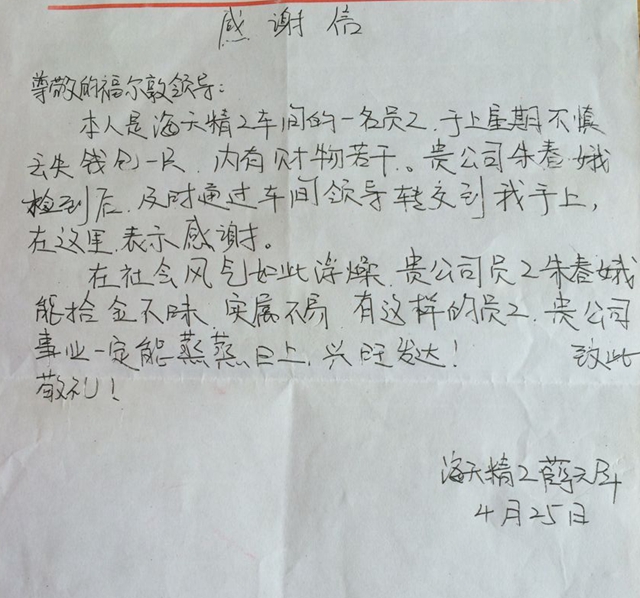 感谢信
尊敬的福尔敦领导：
本人是海天精工车间的一名员工,于上星期不慎
丢失钱包一只,内有财物若干。贵公司朱春娥
检到后,及时通过车间领导转交到我手上,
在这里,表示感谢。
在社会风气如此浮燥,贵公司员工朱春娥
能拾金不昧,实属不易,有这样的员工,贵公司
事业一定能蒸蒸日上,兴旺发达! 致此
敬礼!
海天精工
4月25日